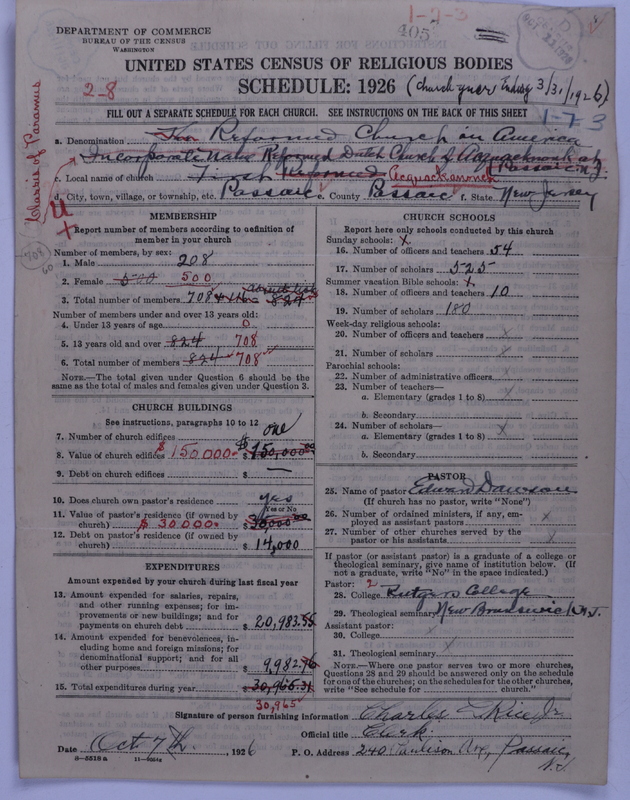 1-2-3
405
DEPARTMENT OF COMMERCE
BUREAU OF THE CENSUS
WASHINGTON
UNITED STATES CENSUS OF RELIGIOUS BODIES
SCHEDULE: 1926 (Church year Ending 3/31/1926)
2-8
FILL OUT A SEPARATE SCHEDULE FOR EACH CHURCH. SEE INSTRUCTIONS ON THE BACK OF THIS SHEET
1-7-3
a. Denomination The Reformed Church in America
Incorporate Name Reformed Dutch Church of Acquackanonk at Passaic N.J.
c. Local name of church First Reformed Acquackanonck
d. City, town, village, or township, etc. Passaic e. County Passaic f. State New Jersey
Classis of Paramus
MEMBERSHIP
Report number of members according to definition of member in your church
Number of members, by sex:
1. Male 208
2. Female 500
3. Total number of members 708 824
Number of members under and over 13 years old:
4. Under 13 years of age 0
5. 13 years old and over 824 708
6. Total number of members 824 708
NOTE.—The total given under Question 6 should be the same as the total of males and females given under Question 3.
CHURCH BUILDINGS
See instructions, paragraphs 10 to 12
7. Number of church edifices one
8. Value of church edifices $150,000. $150,000.00
9. Debt on church edifices $ —
10. Does church own pastor's residence yes
Yes or No
11. Value of pastor's residence (if owned by church) $30000. $30,000.00
12. Debt on pastor's residence (if owned by church) $14,000
EXPENDITURES
Amount expended by your church during last fiscal year
13. Amount expended for salaries, repairs, and other running expenses; for improvements or new buildings; and for payments on church debt $20,983.55
14. Amount expended for benevolences, including home and foreign missions; for denominational support; and for all other purposes $9,982.76
15. Total expenditures during year $30,966.31
30,965
CHURCH SCHOOLS
Report here only schools conducted by this church
Sunday schools: X
16. Number of officers and teachers 54
17. Number of scholars 525
Summer vacation Bible schools: X
18. Number of officers and teachers 10
19. Number of scholars 180
Week-day religious schools:
20. Number of officers and teachers X
21. Number of scholars X
Parochial schools:
22. Number of administrative officers X
23. Number of teachers—
a. Elementary (grades 1 to 8) X
b. Secondary
24. Number of scholars—
a. Elementary (grades 1 to 8) X
b. Secondary
PASTOR
25. Name of pastor Edward Dawson
(If church has no pastor, write "None")
26. Number of ordained ministers, if any, employed as assistant pastors X
27. Number of other churches served by the pastor or his assistants X
If pastor (or assistant pastor) is a graduate of a college or theological seminary, give name of institution below. (If not a graduate, write "No" in the space indicated.)
Pastor: 2
28. College Rutgers College
29. Theological seminary New Brunswick N.J.
Assistant pastor:
30. College
31. Theological seminary
NOTE.—Where one pastor serves two or more churches, Questions 28 and 29 should be answered only on the schedule for one of the churches; on the schedules for the other churches, write "See schedule for church."
Signature of person furnishing information Charles Rice Jr
Official title Clerk
Date Oct 7th, 1926
P. O. Address 240 Paulison Ave, Passaic, N.J.
8—5518a